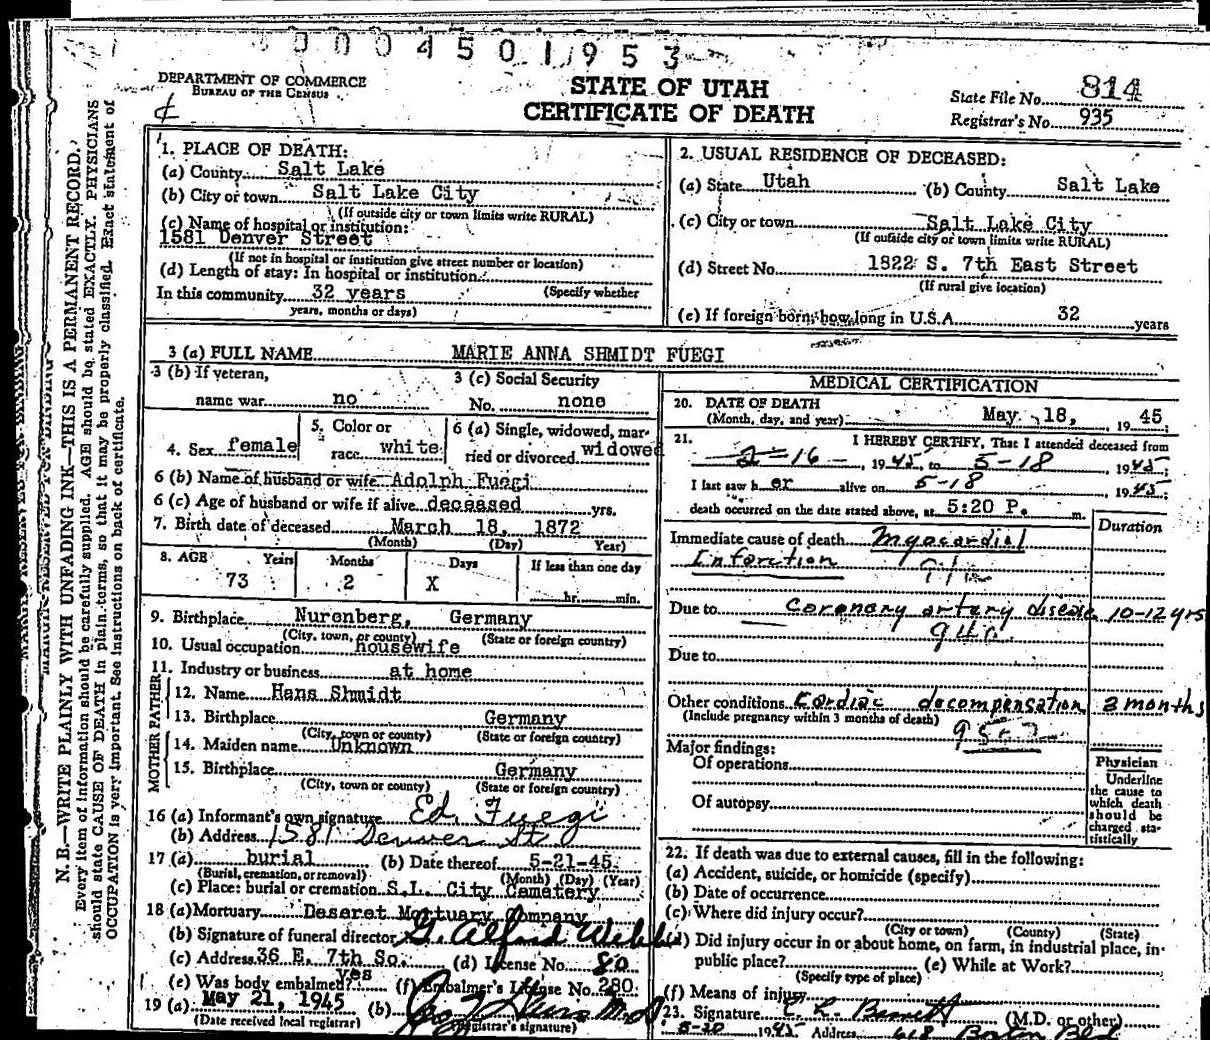 0004501953
DEPARTMENT OF COMMERCE
BUREAU OF THE CENSUS
STATE OF UTAH
CERTIFICATE OF DEATH
State File No. 814
Registrar's No. 935
N. B.—WRITE PLAINLY WITH UNFADING INK—THIS IS A PERMANENT RECORD.
Every item of information should be carefully supplied. AGE should be stated EXACTLY. PHYSICIANS
should state CAUSE OF DEATH in plain terms, so that it may be properly classified. Exact statement of
OCCUPATION is very important. See instructions on back of certificate.
1. PLACE OF DEATH:
(a) County Salt Lake
(b) City or town Salt Lake City
(If outside city or town limits write RURAL)
(c) Name of hospital or institution:
1581 Denver Street
(If not in hospital or institution give street number or location)
(d) Length of stay: In hospital or institution
In this community 32 years (Specify whether
years, months or days)
2. USUAL RESIDENCE OF DECEASED:
(a) State Utah (b) County Salt Lake
(c) City or town Salt Lake City
(If outside city or town limits write RURAL)
(d) Street No. 1822 S. 7th East Street
(If rural give location)
(e) If foreign born, how long in U.S.A. 32 years
3 (a) FULL NAME MARIE ANNA SHMIDT FUEGI
3 (b) If veteran, 3 (c) Social Security
name war no No. none
4. Sex female 5. Color or race white 6 (a) Single, widowed, married or divorced widowed
6 (b) Name of husband or wife Adolph Fuegi
6 (c) Age of husband or wife if alive deceased yrs.
7. Birth date of deceased March 18, 1872
(Month) (Day) Year)
8. AGE Years Months Days If less than one day
73 2 X hr. min.
9. Birthplace Nurenberg, Germany
(City, town, or county) (State or foreign country)
10. Usual occupation housewife
11. Industry or business at home
FATHER
12. Name Hans Shmidt
13. Birthplace Germany
(City, town or county) (State or foreign country)
MOTHER
14. Maiden name Unknown
15. Birthplace Germany
(City, town or county) (State or foreign country)
16 (a) Informant's own signature Ed. Fuegi
(b) Address 1581 Denver St.
17 (a) burial (b) Date thereof 5-21-45.
(Burial, cremation, or removal) (Month) (Day) (Year)
(c) Place: burial or cremation S.L. City Cemetery
18 (a) Mortuary Deseret Mortuary Company
(b) Signature of funeral director G. Alford
(c) Address 36 E. 7th So. (d) License No. 80
(e) Was body embalmed? yes (f) Embalmer's License No. 280
19 (a) May 21, 1945 (b) M.D.
(Date received local registrar) (Registrar's signature)
MEDICAL CERTIFICATION
20. DATE OF DEATH
(Month, day, and year) May 18, 19 45
21. I HEREBY CERTIFY, That I attended deceased from
2-16-, 1945, to 5-18, 1945;
I last saw h er alive on 5-18, 1945
death occurred on the date stated above, at 5:20 P. m.
Duration
Immediate cause of death Myocardial
Infarction
Due to Coronary artery disease 10-12 yrs
Due to
Other conditions Cardiac decompensation 3 months
(Include pregnancy within 3 months of death)
Major findings:
Of operations
Of autopsy
Physician
Underline
the cause to
which death
should be
charged sta-
tistically
22. If death was due to external causes, fill in the following:
(a) Accident, suicide, or homicide (specify)
(b) Date of occurrence
(c) Where did injury occur?
(City or town) (County) (State)
(d) Did injury occur in or about home, on farm, in industrial place, in
public place? (e) While at Work?
(Specify type of place)
(f) Means of injury
23. Signature (M.D. or other)
5-20 1945 Address 618 Boston Bld